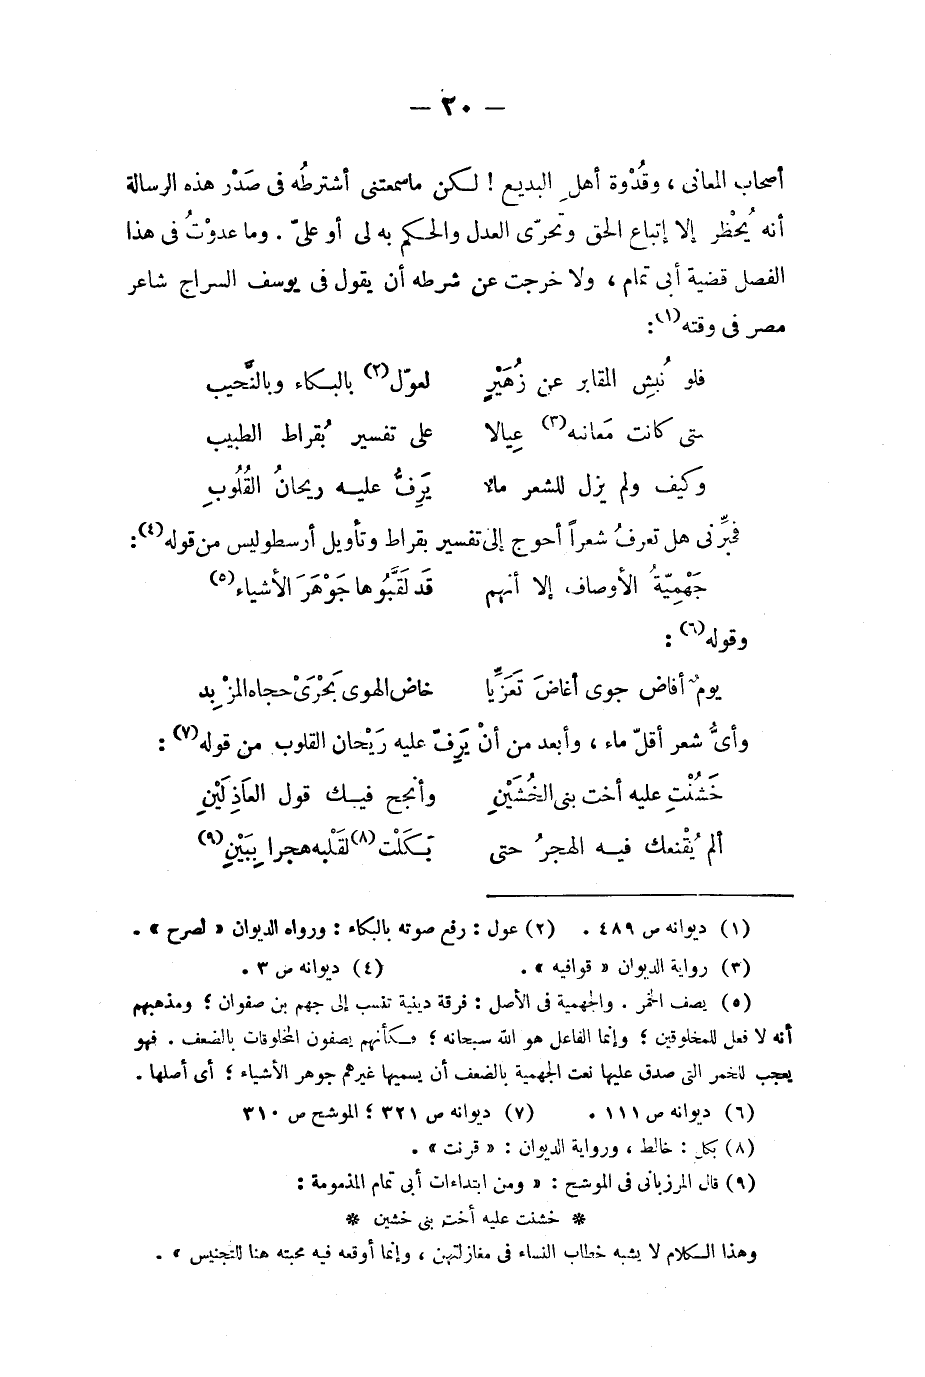 — ٢٠ —
أصحاب المعانى ، وقُدْوة أهلِ البديع ! لكن ماسمعتنى أشترطُه فى صَدْر هذه الرسالة
أنه يُحْظر إلا إتباع الحق وتحرّى العدل والحكم به لى أو علىّ . وما عدوْتُ فى هذا
الفصل قضية أبى تمام ، ولا خرجت عن شرطه أن يقول فى يوسف السراج شاعر
مصر فى وقته(١):
فلو نُبشِ المقابر عن زُهَيْرٍ لعوّل(٢) بالبكاء وبالنَّحيب
متى كانت مَعانيه(٣) عِيالا على تفسير بُقراط الطبيب
وكيف ولم يزل للشعر ماء يَرِفُّ عليه ريحانُ القُلُوبِ
فخبِّرنى هل تعرفُ شعراً أحوج إلى تفسير بقراط وتأويل أرسطوليس من قوله(٤):
جَهْمِيّةُ الأوصاف إلا أنهم قَد لَقَّبُوها جَوْهَرَ الأشياء(٥)
وقوله(٦) :
يومٌ أفاض جوى أغاضَ تَعَزِّيا خاض الهوى بَحْرَىْ حجاه المزْبِد
وأىُّ شعر أقلّ ماء ، وأبعد من أنْ يَرِفّ عليه رَيْحان القلوب من قوله(٧) :
خَشُنْتِ عليه أخت بنى الخُشَيْنِ وأنجح فيك قول العَاذِلَيْنِ
ألم يُقْنعك فيه الهجرُ حتى بَكَلْت(٨) لقَلْبه هجرا بِبَيْنِ(٩)
(١) ديوانه ص ٤٨٩ . (٢) عول : رفع صوته بالبكاء : ورواه الديوان « لصرح » .
(٣) رواية الديوان « قوافيه » . (٤) ديوانه ص ٣ .
(٥) يصف الخمر . والجهمية فى الأصل : فرقة دينية تنسب إلى جهم بن صفوان ؛ ومذهبهم
أنه لا فعل للمخلوقين ؛ وإنما الفاعل هو الله سبحانه ؛ فكأنهم يصفون المخلوقات بالضعف . فهو
يعجب للخمر التى صدق عليها نعت الجهمية بالضعف أن يسميها غيرهم جوهر الأشياء ؛ أى أصلها .
(٦) ديوانه ص ١١١ . (٧) ديوانه ص ٣٢١ ؛ الموشح ص ٣١٠
(٨) بكل : خالط ، ورواية الديوان : « قرنت » .
(٩) قال المرزبانى فى الموشح : « ومن ابتداءات أبى تمام المذمومة :
* خشنت عليه أخت بنى خشين *
وهذا الكلام لا يشبه خطاب النساء فى مغازلتهن ، وإنما أوقعه فيه محبته هنا للتجنيس » .